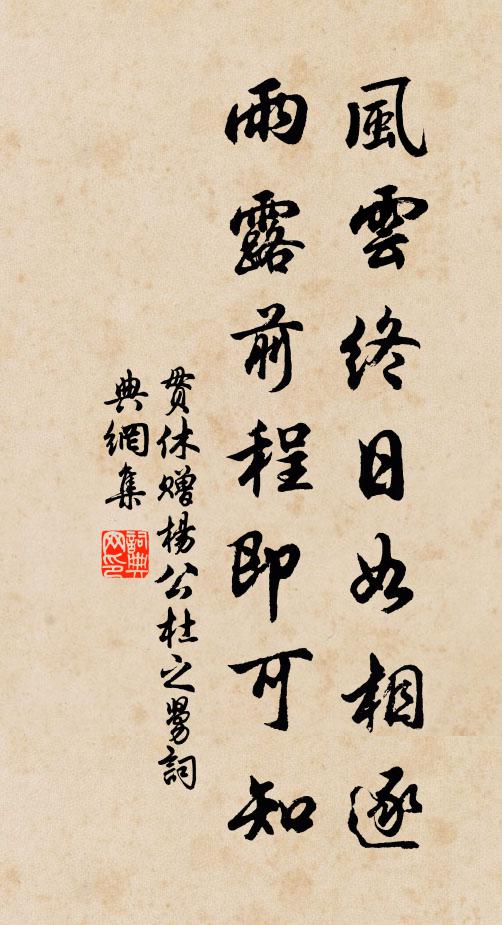 風雲終日如相逐
雨露前程即可知
貫休贈楊公杜之舅詞
典網集
詞典
网印